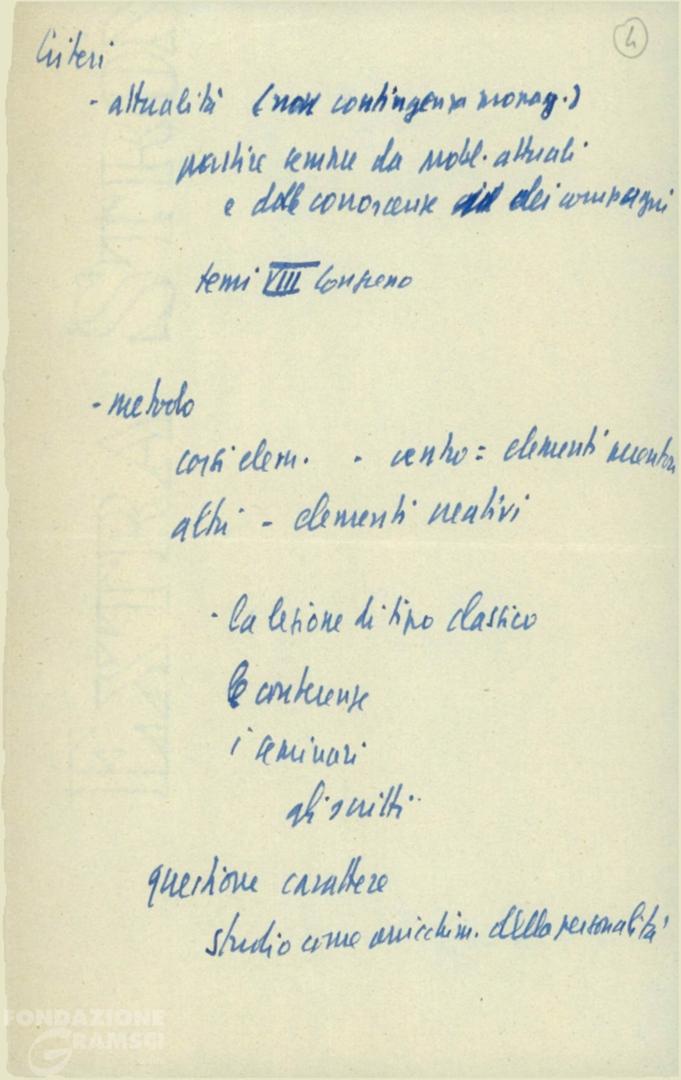 4
Criteri
- attualità (non contingenza
partire sempre da probl. attuali
e dalle conoscenze dei compagni
temi VIII Congresso
- metodo
corsi elem. - centro = elementi
altri - elementi creativi
- la lezione di tipo classico
le conferenze
i seminari
gli scritti
questione carattere
studio come arricchim. della personalità
FONDAZIONE
GRAMSCI